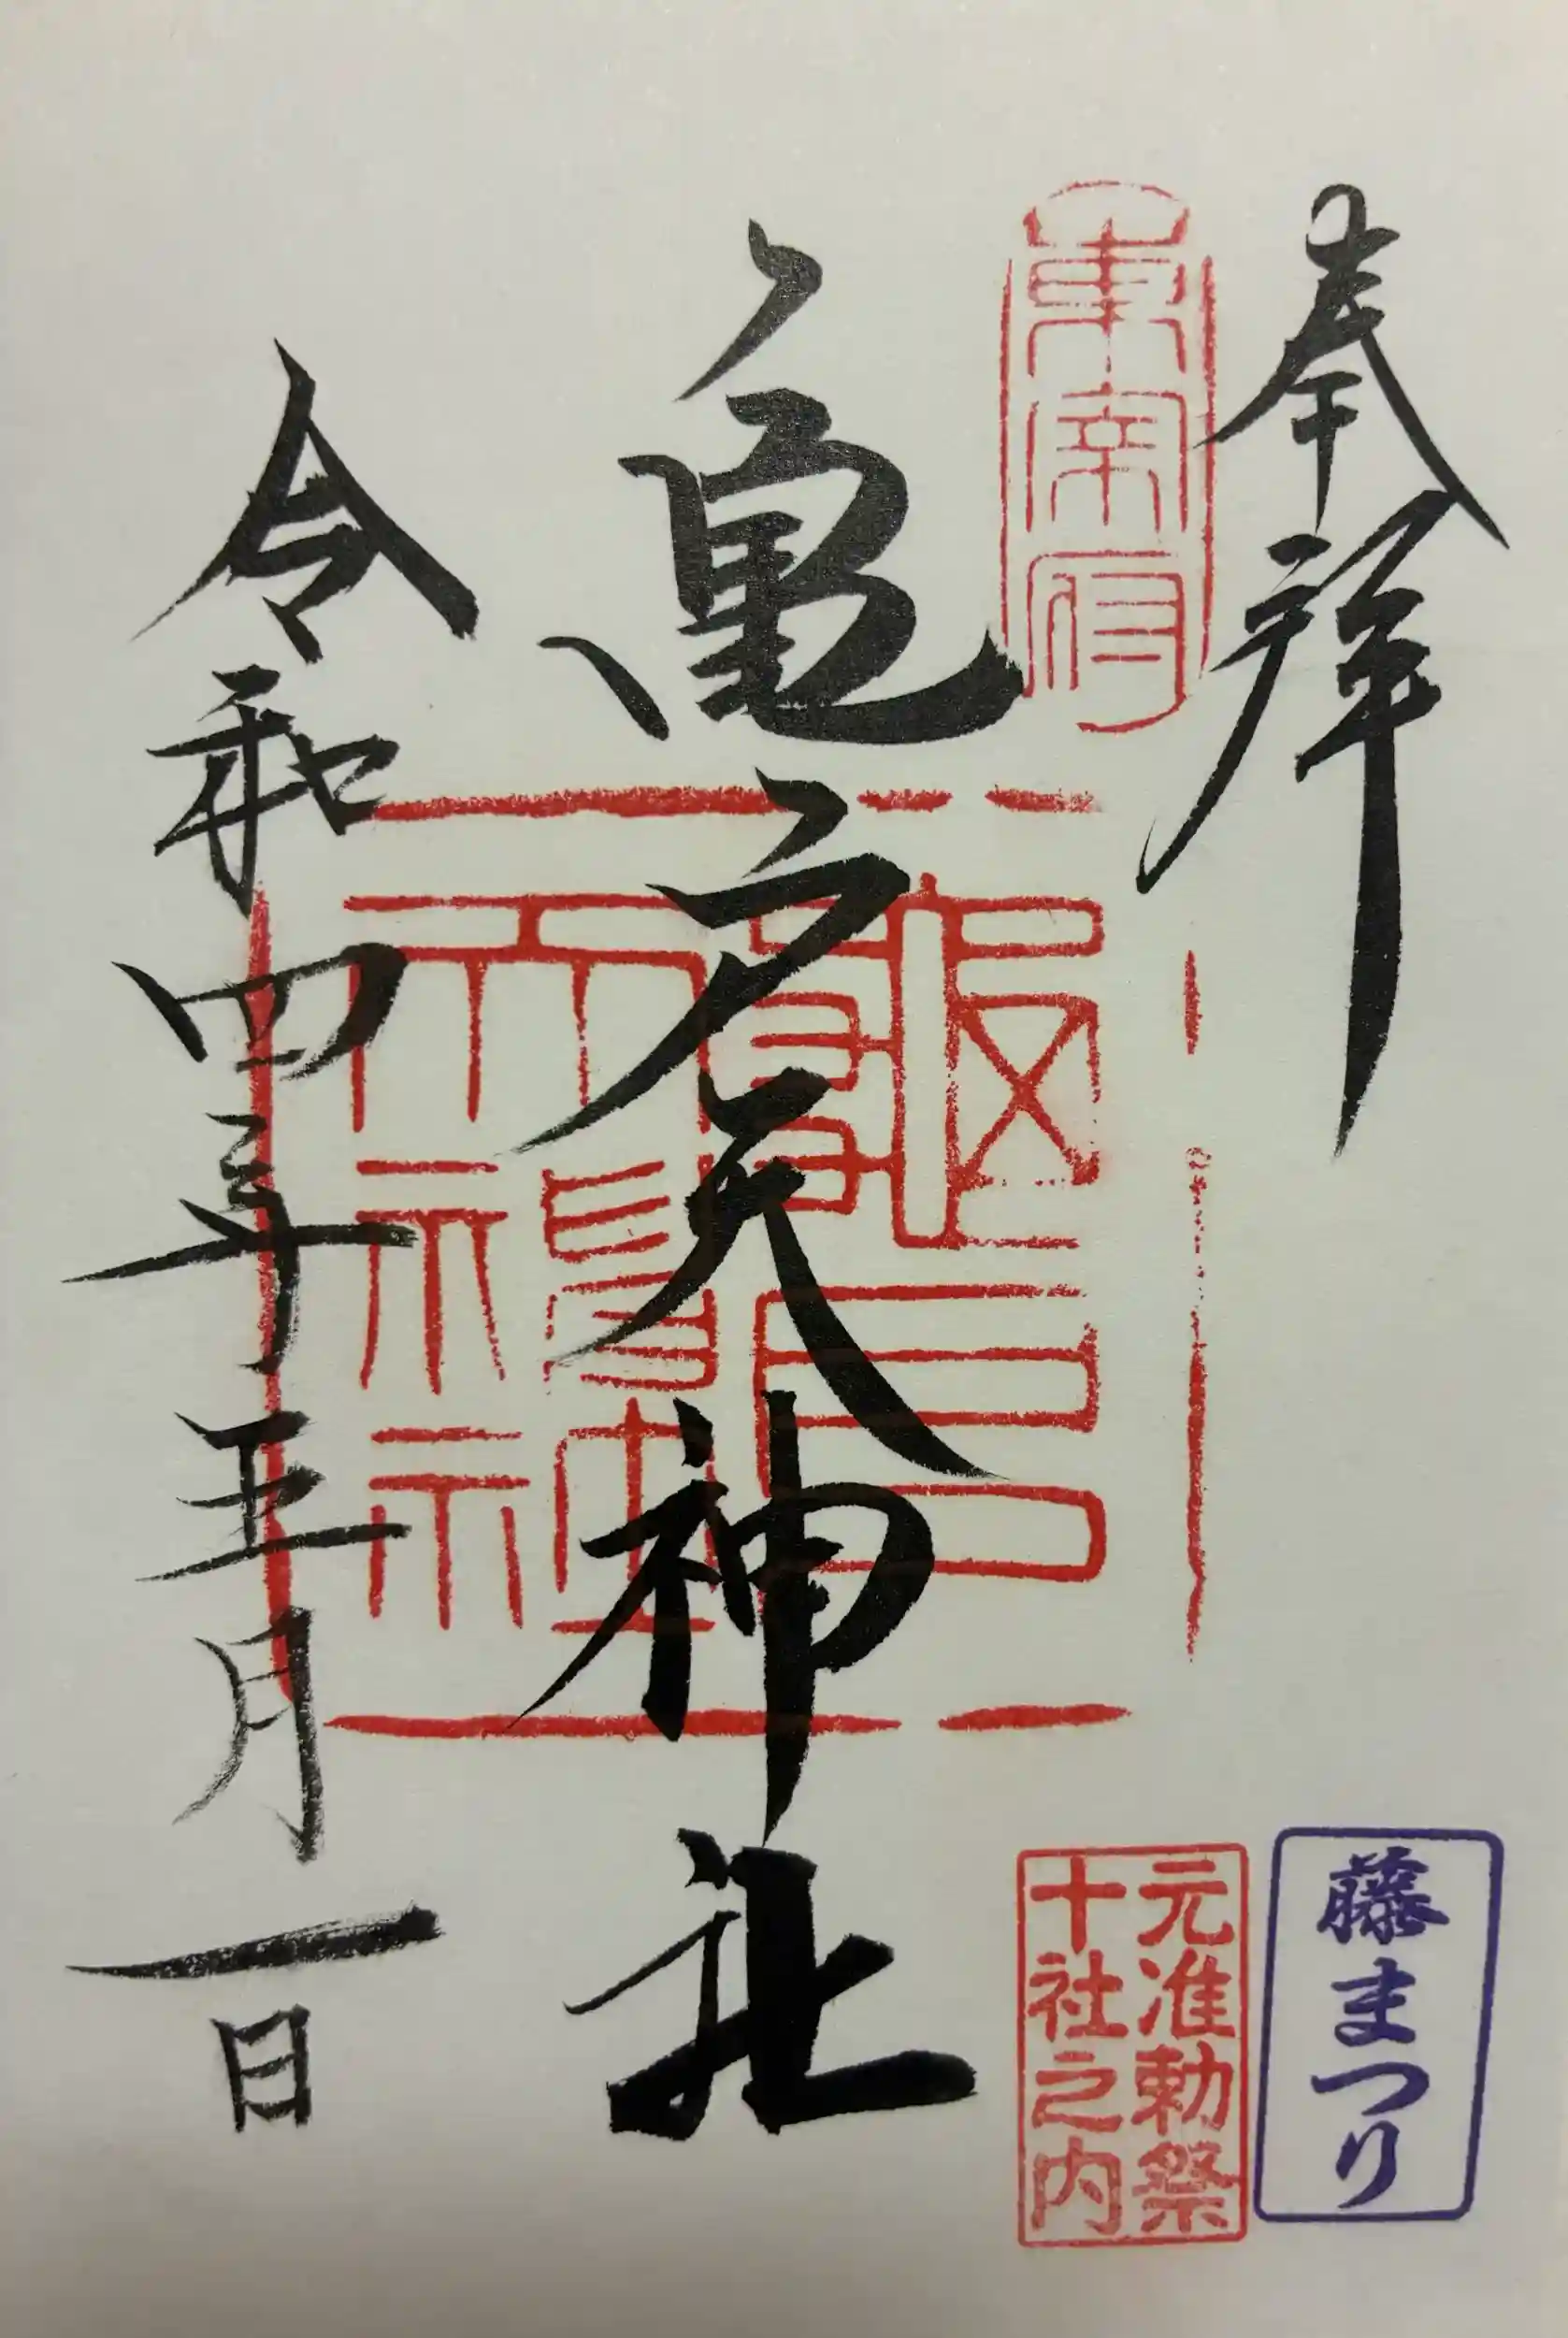 奉拝
藤まつり
東宰府
元准勅祭
十社之内
亀戸天神社
龜戸
天神社
令和四年五月一日